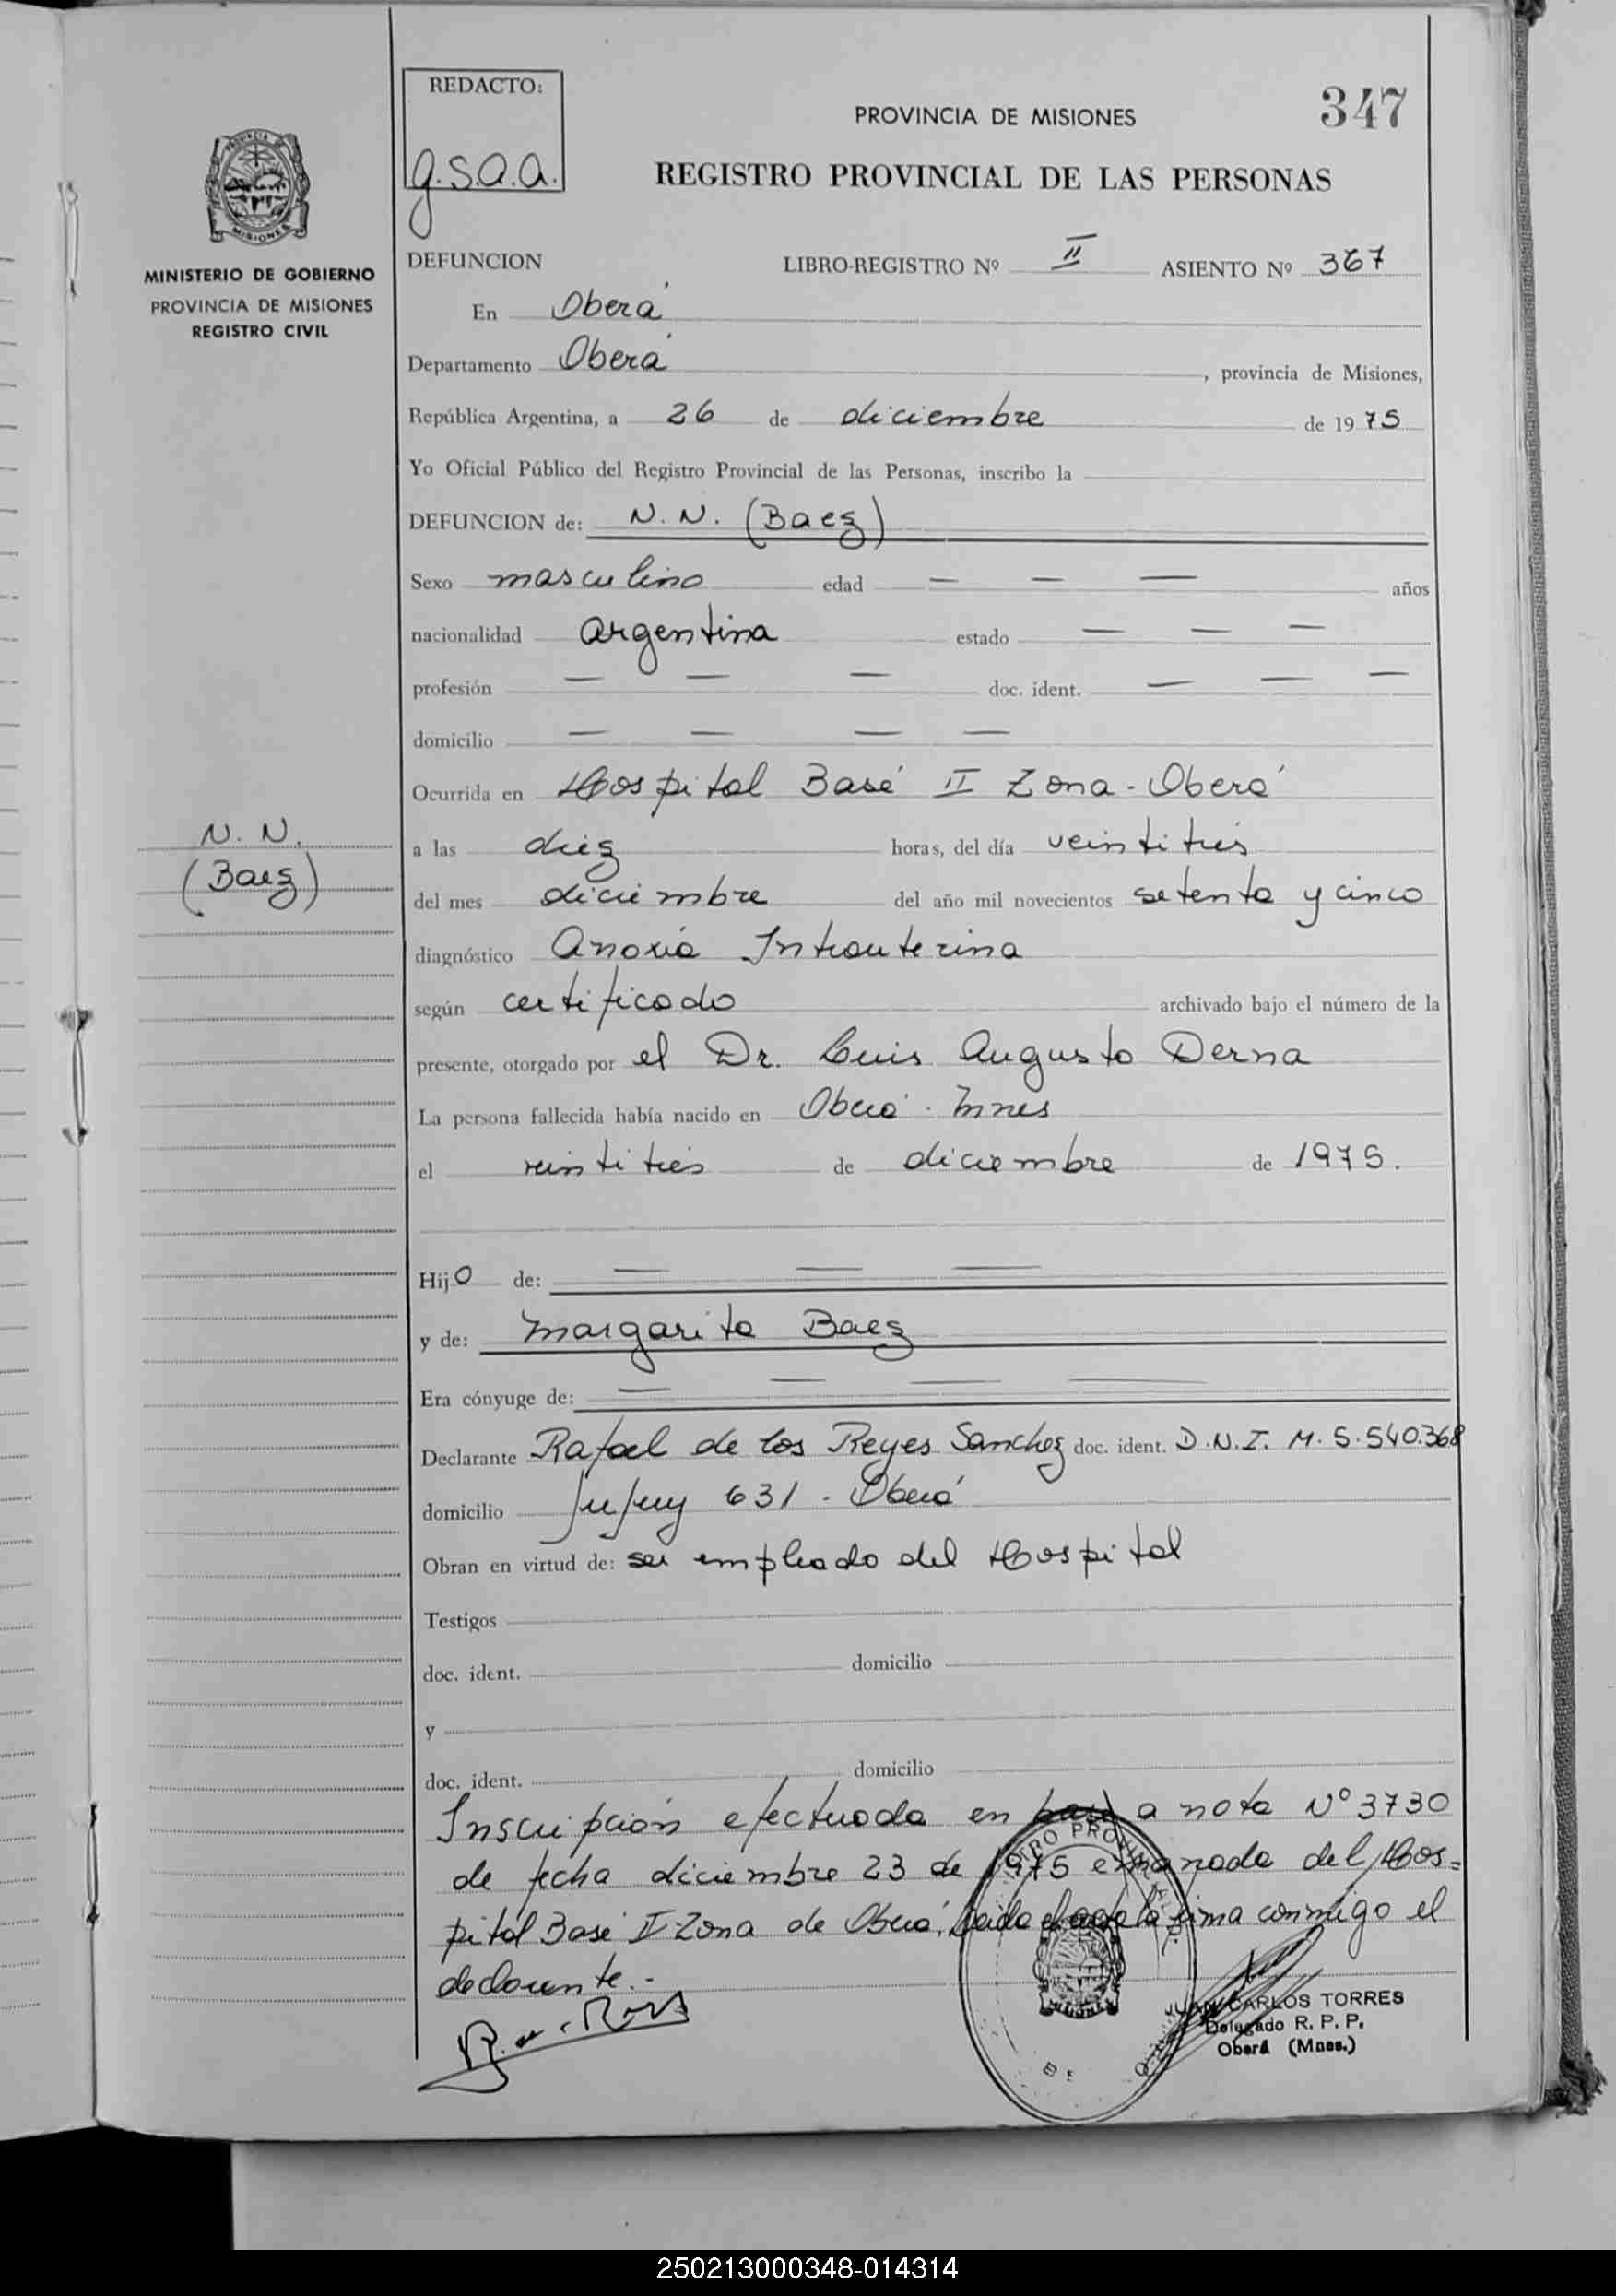 REDACTO:
g.s.a.a.
347
PROVINCIA DE MISIONES
REGISTRO PROVINCIAL DE LAS PERSONAS
MINISTERIO DE GOBIERNO
PROVINCIA DE MISIONES
REGISTRO CIVIL
DEFUNCION LIBRO-REGISTRO Nº II ASIENTO Nº 367
En Oberá
Departamento Oberá, provincia de Misiones,
República Argentina, a 26 de diciembre de 1975
Yo Oficial Público del Registro Provincial de las Personas, inscribo la
DEFUNCION de: N. N. (Baez)
Sexo masculino edad — — — años
nacionalidad argentina estado — — —
profesión — — — doc. ident. — — —
domicilio — — — —
Ocurrida en Hospital Base II Zona - Oberá
N. N.
(Baez)
a las diez horas, del día veintitrés
del mes diciembre del año mil novecientos setenta y cinco
diagnóstico Anoxia Intrauterina
según certificado archivado bajo el número de la
presente, otorgado por el Dr. Luis Augusto Derna
La persona fallecida había nacido en Oberá - Mnes
el veintitrés de diciembre de 1975.
Hijo de: — — —
y de: Margarita Baez
Era cónyuge de: — — — —
Declarante Rafael de los Reyes Sanchez doc. ident. D.N.I. M. 5.540.368
domicilio Jujuy 631 - Oberá
Obran en virtud de: ser empleado del Hospital
Testigos
doc. ident. domicilio
y
doc. ident. domicilio
Inscripción efectuada en base a nota Nº 3730
de fecha diciembre 23 de 1975 emanada del Hos=
pital Base II Zona de Oberá, Leida el acta la firma conmigo el
declarante.-
JUAN CARLOS TORRES
Delegado R. P. P.
Oberá (Mnes.)
250213000348-014314